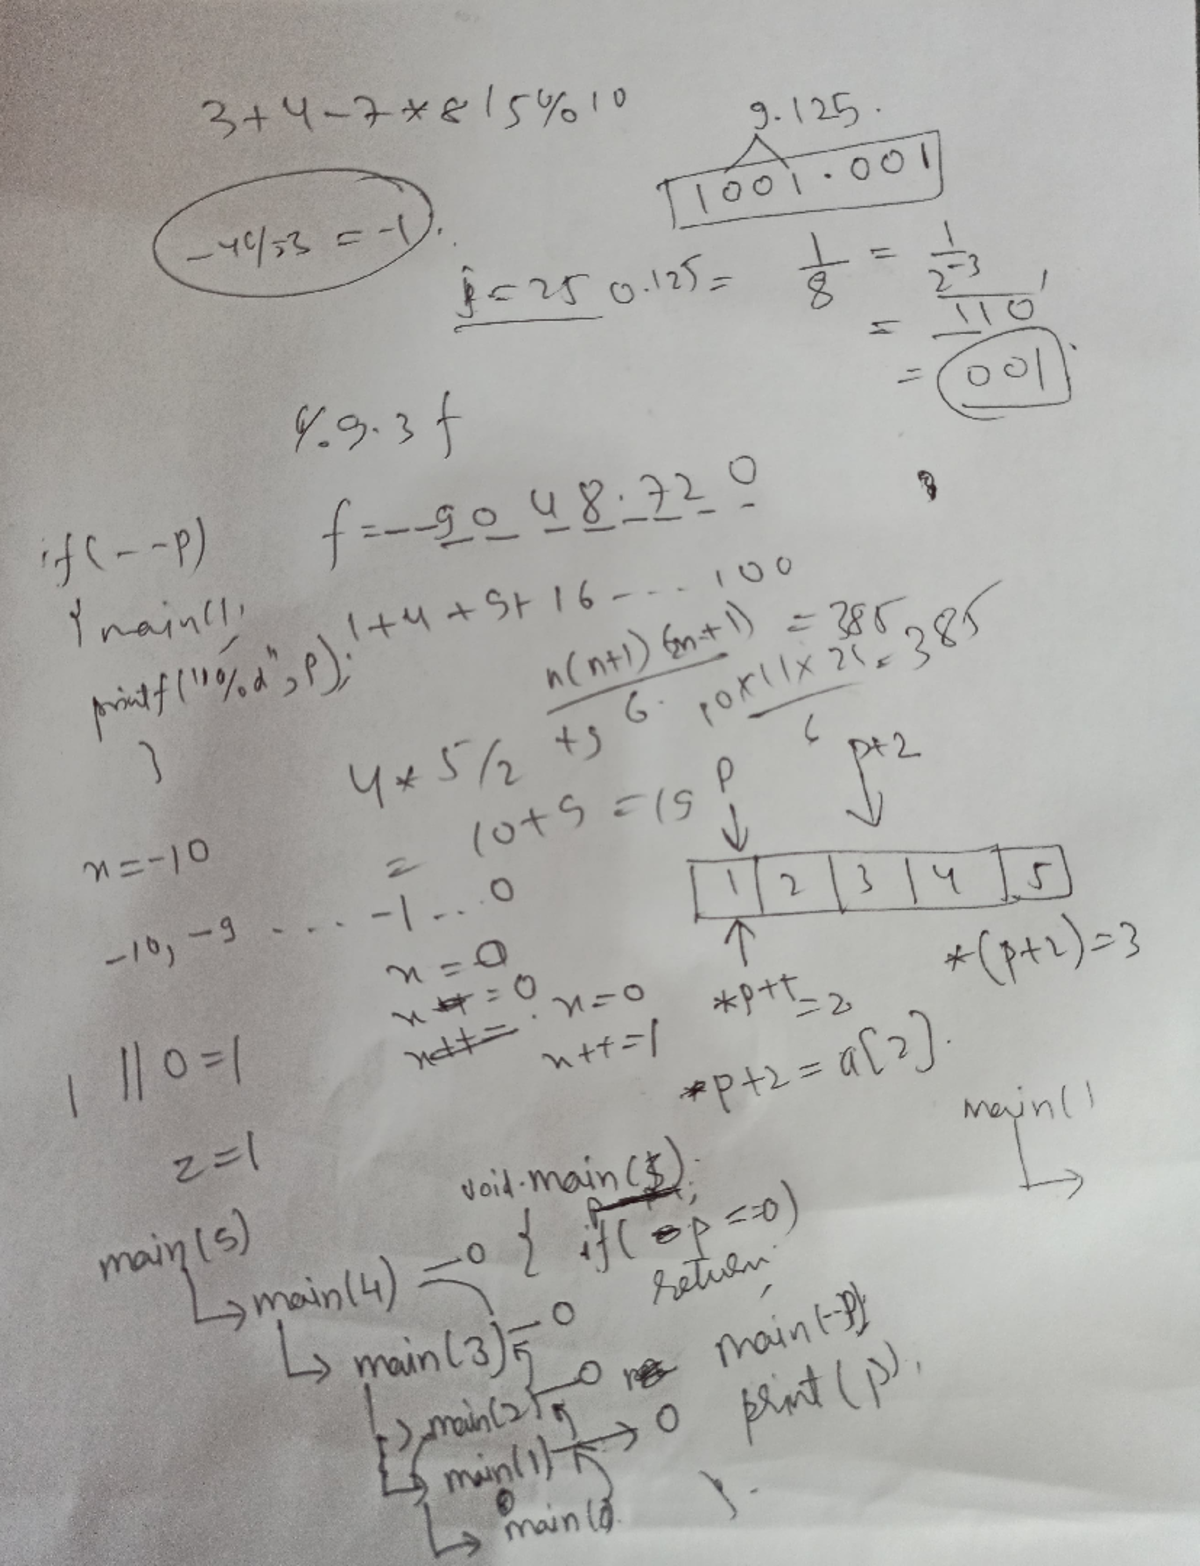 3+4-7*8/5%10
9.125.
1001.001
-4%3 = -1
j=25 0.125 = 1/8 = 1/2-3
= 110
= 001
%.9.3f
f=--9048.720
if(--p)
{ main();
printf("%d",p);
}
1+4+9+16-...100
n(n+1)(2n+1)/6 = 385
10x11x21/6 = 385
4*5/2 +9
= 10+9=19
p
p+2
1 2 3 4 5
*p++=2
*(p+2)=3
*p+2=a[2].
n=-10
-10,-9 ....-1...0
n=0
n++=0
n++=
n=0
n++=1
1 || 0=1
z=1
main()
void main( p );
{ if( p<=0)
return;
main(--p);
print(p);
}
main(5)
main(4) =0
main(3) =0
main(2) 0
main(1) 0
main(0).